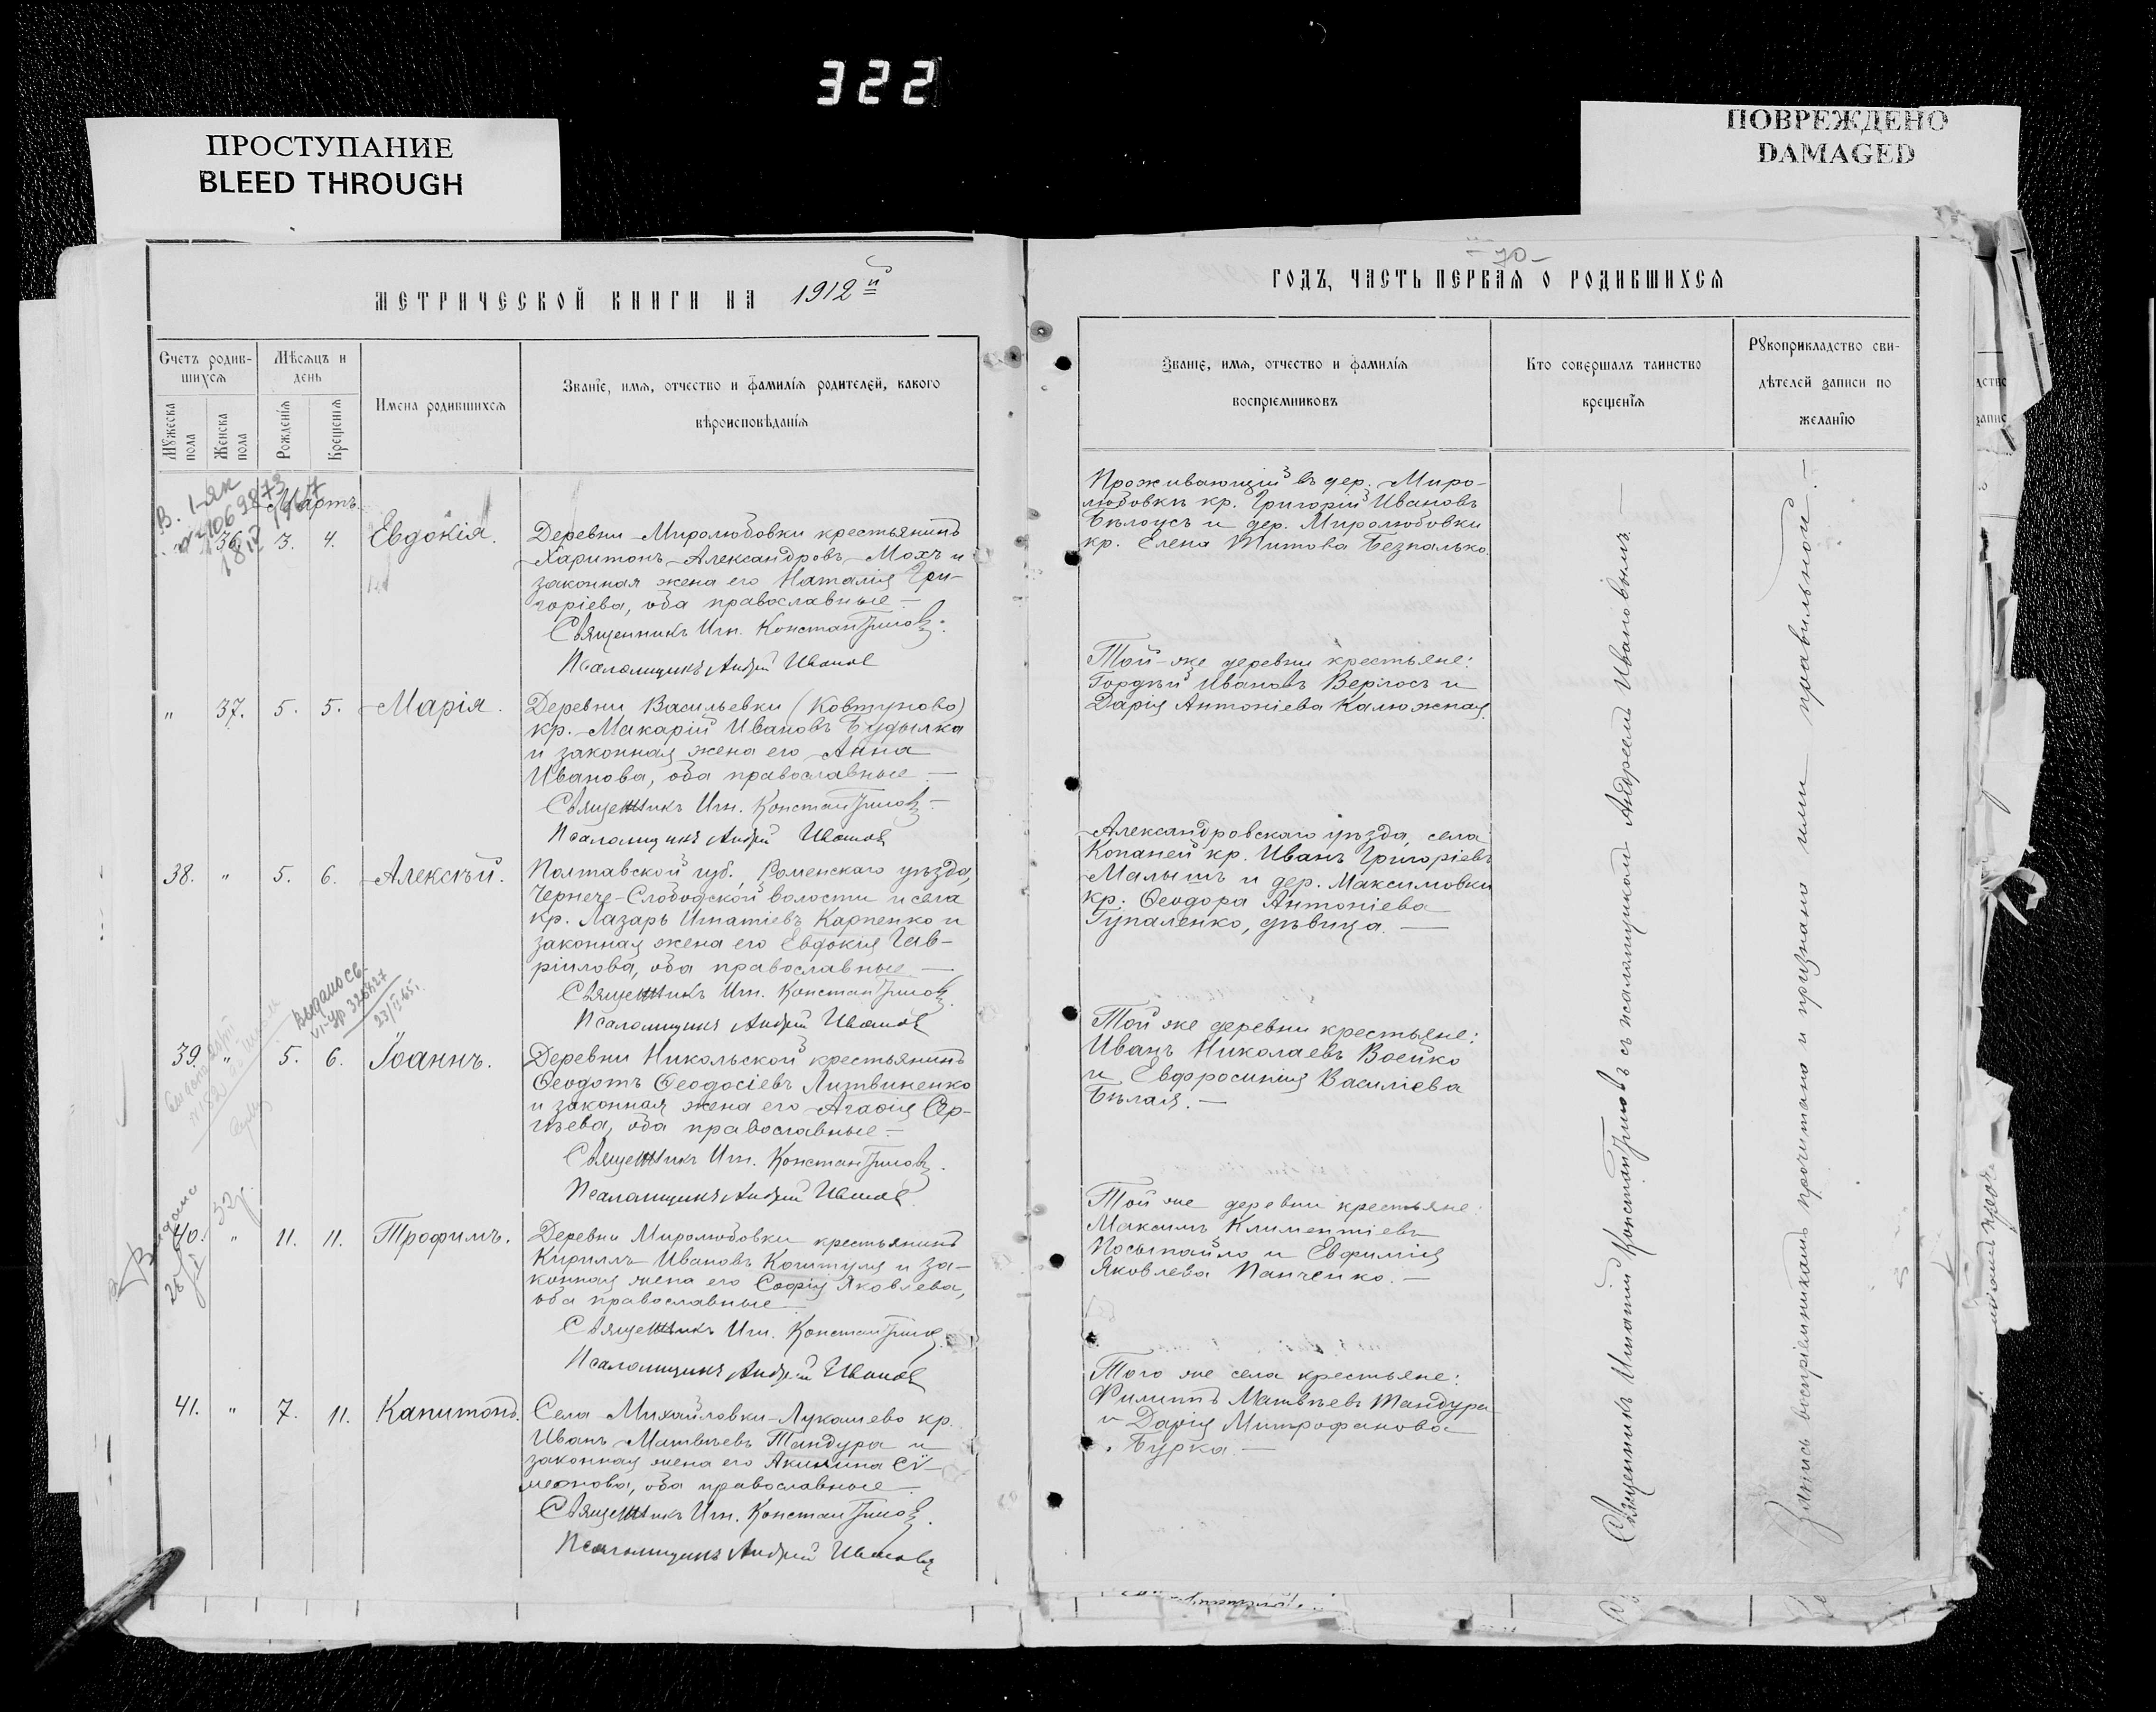 322
ПРОСТУПАНИЕ
BLEED THROUGH
ПОВРЕЖДЕНО
DAMAGED
МЕТРИЧЕСКОЙ КНИГИ НА 1912й
Счетъ родив-
шихся
Мѣсяцъ и
день
Мужеска
пола
Женска
пола
Рожденія
Крещенія
Имена родившихся
Званіе, имя, отчество и фамилія родителей, какого
вѣроисповѣданія
Мартъ
36. 3. 4. Евдокія.
Деревни Миролюбовки крестьянинъ
Харитонъ Александровъ Мохъ и
законная жена его Наталія Гри-
горіева, оба православные.—
Священникъ Игн. Константиновъ.
Псаломщикъ Андрей Иванов
" 37. 5. 5. Марія.
Деревни Васильевки (Ковтуново)
кр. Макарій Ивановъ Будылка
и законная жена его Анна
Иванова, оба православные.—
Священникъ Игн. Константиновъ.—
Псаломщикъ Андрей Иванов
38. " 5. 6. Алексѣй.
Полтавской губ. Роменскаго уѣзда,
Чернече-Слободской волости и села
кр. Лазарь Игнатіевъ Карпенко и
законная жена его Евдокія Гав-
ріилова, оба православные.—
Священникъ Игн. Константиновъ.
Псаломщикъ Андрей Иванов
выдано св.
39. " 5. 6. Іоаннъ.
Деревни Никольской крестьянинъ
Ѳеодотъ Ѳеодосіевъ Литвиненко
и законная жена его Агаѳія Сер-
гѣева, оба православные.—
Священникъ Игн. Константиновъ.
Псаломщикъ Андрей Иванов
40. " 11. 11. Трофимъ.
Деревни Миролюбовки крестьянинъ
Кириллъ Ивановъ Коштуля и за-
конная жена его Софія Яковлева,
оба православные.—
Священникъ Игн. Константинов
Псаломщикъ Андрей Иванов
41. " 7. 11. Капитонъ.
Села Михайловки-Лукашево кр.
Иванъ Матвѣевъ Тандура и
законная жена его Акилина Сѵ-
меонова, оба православные.
Священникъ Игн. Константинов.
Псаломщикъ Андрей Ивановъ
-70-
ГОДЪ, ЧАСТЬ ПЕРВАЯ О РОДИВШИХСЯ
Званіе, имя, отчество и фамилія
воспріемниковъ
Кто совершалъ таинство
крещенія
Рукоприкладство сви-
дѣтелей записи по
желанію
Проживающій въ дер. Миро-
любовкѣ кр. Григорій Ивановъ
Бѣлоусъ и дер. Миролюбовки
кр. Елена Титова Безпалько.
Той-же деревни крестьяне:
Гордѣй Ивановъ Верлосъ и
Дарія Антоніева Калюжная.
Александровскаго уѣзда, села
Копаней кр. Иванъ Григоріевъ
Малышъ и дер. Максимовки
кр. Ѳеодора Антоніева
Гупаленко, дѣвица.—
Той же деревни крестьяне:
Иванъ Николаевъ Воейко
и Евфросинія Василіева
Бѣлая.—
Той же деревни крестьяне:
Максимъ Климентіевъ
Посыпайло и Евфимія
Яковлева Панченко.—
Того же села крестьяне:
Филиппъ Матвѣевъ Тандура
и Дарія Митрофанова
Бурка.—
Священникъ Игнатій Константиновъ съ псаломщикомъ Андреемъ Ивановымъ.—
Запись воспріемникамъ прочитана и признана ими правильной.—